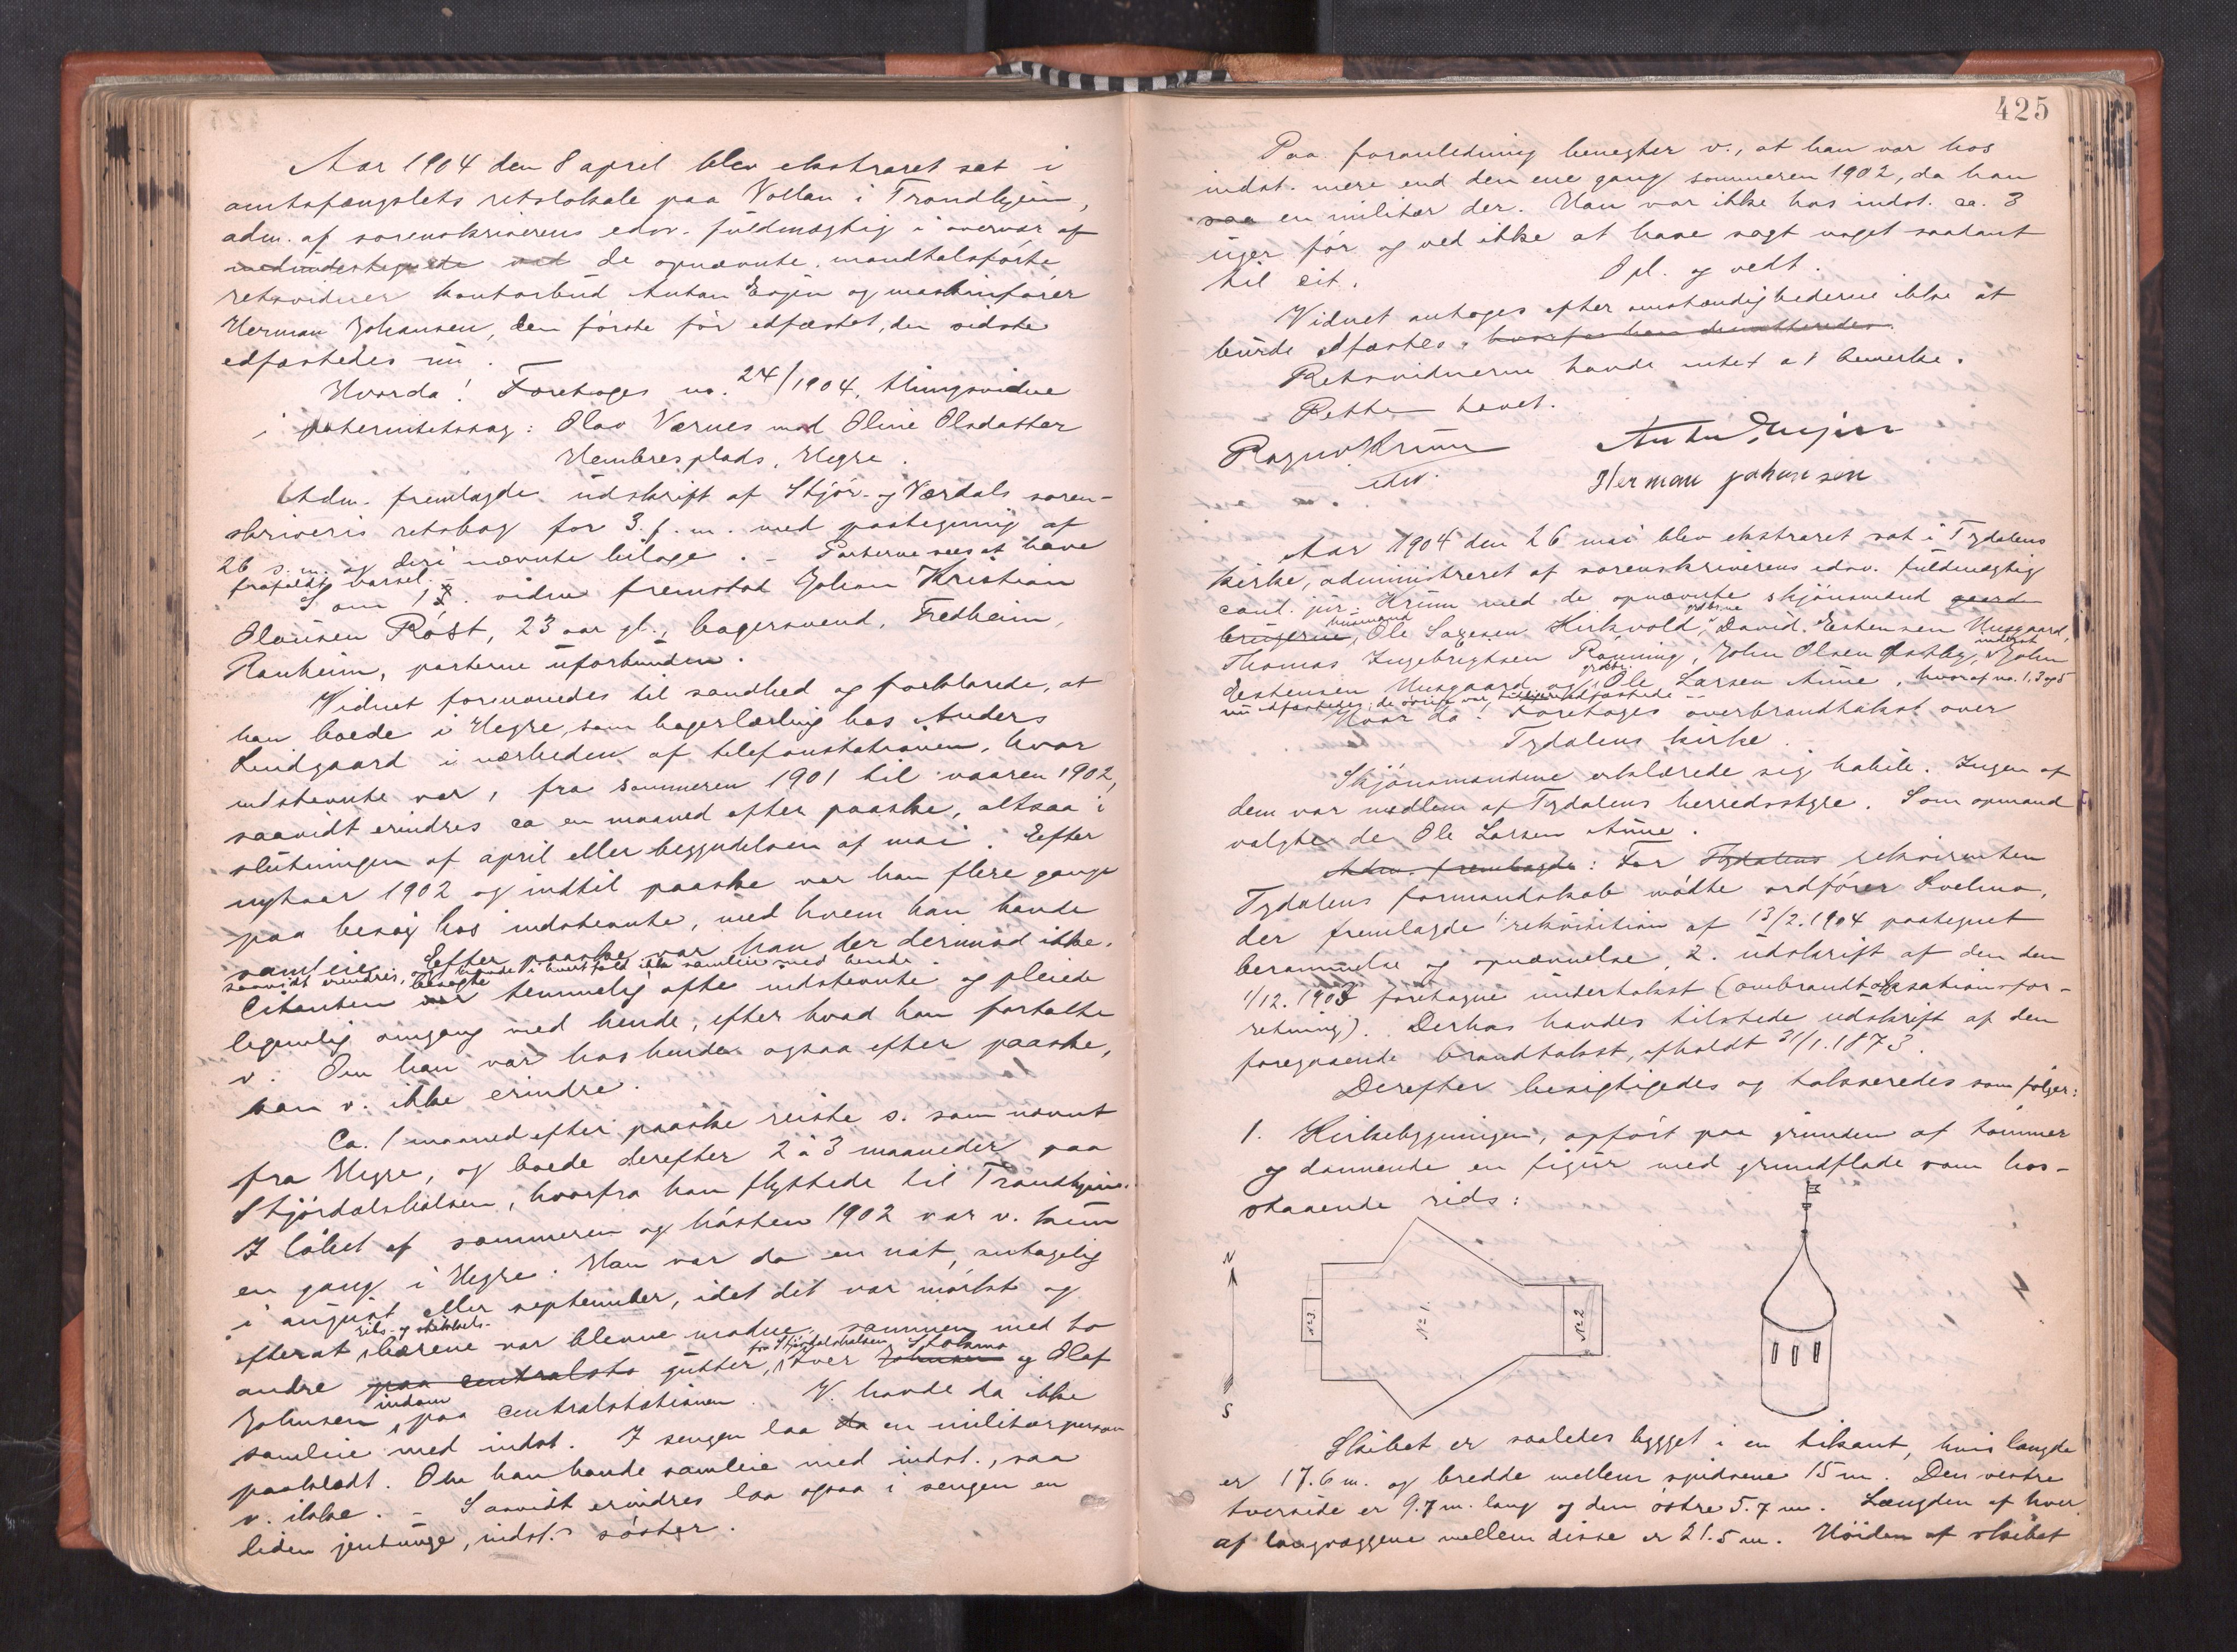 Aar 1904 den 8 april blev ekstraret sat i
amtsfængslets retslokale paa Vollan i Trondhjem,
adm. af sorenskriverens edsv. fuldmægtig i overvær af
de opnævnte, mandtalsførte
retsvidner kontorbud Anton Engen og maskinfører
Herman Johansen, den første før edfæstet, den sidste
edfæstedes nu. —
Hvorda! Foretoges no. 24/1904, thingsvidne
i paternitetssag: Olav Værnes mod Oline Olsdatter
Hembresplads, Hegre.
Adm. fremlagde udskrift af Stjør- og Værdals soren-
skriveris retsbog for 3. f. m. med paategning af
26 s. m. og deri nævnte bilage. – Parterne sees at have
frafaldt varsel. –
Som 1. vidne fremstod Johan Kristian
Olausen Röst, 23 aar gl., bagersvend, Fredheim,
Ranheim, parterne uforbunden.
Vidnet formanedes til sandhed og forklarede, at
han boede i Hegre, som bagerlærling hos Anders
Lindgaard i nærheden af telefonstationen, hvor
indstevnte var, fra sommeren 1901 til vaaren 1902,
saavidt erindres ca en maaned efter paaske, altsaa i
slutningen af april eller begyndelsen af mai. Efter
nytaar 1902 og indtil paaske var han flere gange
paa besøg hos indstevnte, med hvem han havde
samleie. Efter paaske var han der derimod ikke,
saavidt erindres, og havde i hvert fald ikke samleie med hende.
Citanten besøgte temmelig ofte indstevnte og pleiede
legemlig omgang med hende, efter hvad han fortalte
v. Om han var hos hende ogsaa efter paaske,
kan v. ikke erindre.
Ca. 1 maaned efter paaske reiste v. som nævnt
fra Hegre, og boede derefter 2 à 3 maaneder paa
Stjørdalshalsen, hvorfra han flyttede til Trondhjem.
I løbet af sommeren og høsten 1902 var v. kun
en gang i Hegre: Han var da en nat, antagelig
i august eller september, idet det var mørkt og
ribs- og stikkels-
efterat bærene var blevne modne, sammen med to
fra Stjørdalshalsen Stokmo
andre paa centralsta gutter, Iver Johnsen og Olaf
Johnsen indom paa centralstationen. V. havde da ikke
samleie med indst. I sengen laa da en militærperson
paaklædt. Om han havde samleie med indst., saa
v. ikke. – Saavidt erindres laa ogsaa i sengen en
liden jentunge, indst.s søster.
425
Paa foranledning benegter v., at han var hos
indst. mere end den ene gang sommeren 1902, da han
saa en militær der. Han var ikke hos indst. ca. 3
uger før og ved ikke at have sagt noget saadant
til cit. Opl. og vedt.
Vidnet antoges efter omstændighederne ikke at
burde edfæstes, hvorfor han demitteredes.
Retsvidnerne havde intet at bemerke.
Retten hævet.
Ragnv. Krüm Anton Engen
edsv. Herman Johansen
Aar 1904 den 26 mai blev ekstraret sat i Tydalens
kirke, administreret af sorenskriverens edsv. fuldmægtig
cand. jur. Krüm med de opnævnte skjønsmænd gaard
husmand grdbrne
brugerne, Ole Larsen Kirkvold, David Estensen Unsgaard,
inderst
Thomas Ingebrigtsen Rønning, John Olsen Østby, John
grdbr.
Estensen Unsgaard og Ole Larsen Aune, hvoraf no. 1, 3 og 5
nu edfæstedes; de øvrige var tidligere edfæstede. –
Hvor da! Foretoges overbrandtakst over
Tydalens kirke.
Skjønsmændene erklærede sig habile. Ingen af
dem var medlem af Tydalens herredsstyre. Som opmand
valgte de Ole Larsen Aune.
Adm. fremlagde: For Tydalens rekvirenten
Tydalens formandskab mødte ordfører Lvelmo,
der fremlagde 1. rekvisition af 13/2.1904 paategnet
berammelse og opnævnelse, 2. udskrift af den den
1/12. 1903 foretagne undertakst (ombrandtaksationsfor-
retning). Derhos havdes tilstede udskrift af den
foregaaende brandtakst, afholdt 31/1.1873.
Derefter besigtigedes og takseredes som følger:
1. Kirkebygningen, opført paa grunden af tømmer
og dannende en figur med grundflade som hos-
staaende rids:
N
S
No 3.
No 1.
No 2
Skibet er saaledes bygget i en tikant, hvis længde
er 17.6 m. og bredde mellem spidsene 15 m. Den vestre
tverside er 9.7 m. lang og den østre 5.7 m. Længden af hver
af langvæggene mellem disse er 21.5 m. Høiden af skibet